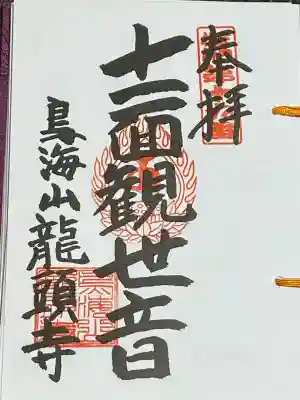 奉拝
十一面観世音
鳥海山龍頭寺